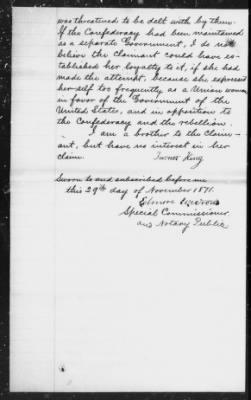 was threatened to be delt with by them.
If the Confederacy had been maintained
as a separate Government, I do not
believe the claimant could have es-
tablished her loyalty to it, if she had
made the attempt, because she expressed
herself too frequently as a Union woman
in favor of the Government of the
United States, and in opposition to
the Confederacy and the rebellion.
I am a brother to the claim-
ant, but have no interest in her
claim.
King
Sworn to and subscribed before me
this 29th day of November 1871.
Special Commissioner
and Notary Public